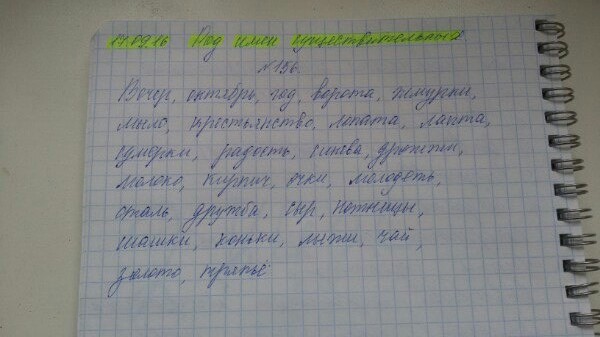 17.09.16 Род имён существительных
№156.
Вечер, октябрь, год, ворота, жмурки,
мыло, крестьянство, лопата, лапта,
сумерки, радость, синева, дрожжи,
молоко, кирпич, очки, молодёжь,
сталь, дружба, сыр, ножницы,
шашки, коньки, лыжи, чай,
золото, тряпьё